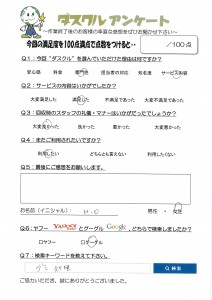 ダスクル アンケート
～作業終了後のお客様の率直な感想をぜひお聞かせ下さい～
今回の満足度を100点満点で点数をつけると・・ /100点
Q1：今回“ダスクル”を選んでいただけた理由は何ですか？
安心感 料金 専門性 担当者の対応 知名度 サービス内容
Q2：サービスの内容はいかがでしたか？
大変満足した 満足した 不満だった 大変不満だった
Q3：回収時のスタッフの礼儀・マナーはいかがだったでしょうか？
大変良かった 良かった 悪かった 大変悪かった
Q4：またご利用されたいですか？
利用したい どちらとも言えない 利用したくない
Q5：最後にご感想をお願いします。
お名前（イニシャル）： H.O 男性 ・ 女性
Q6：ヤフー YAHOO! とグーグル Google、どちらで検索しましたか？
ロヤフー ログーグル
Q7：検索キーワードを教えて下さい。
ゴミ 処理 検索
ご協力いただき、誠にありがとうございました。